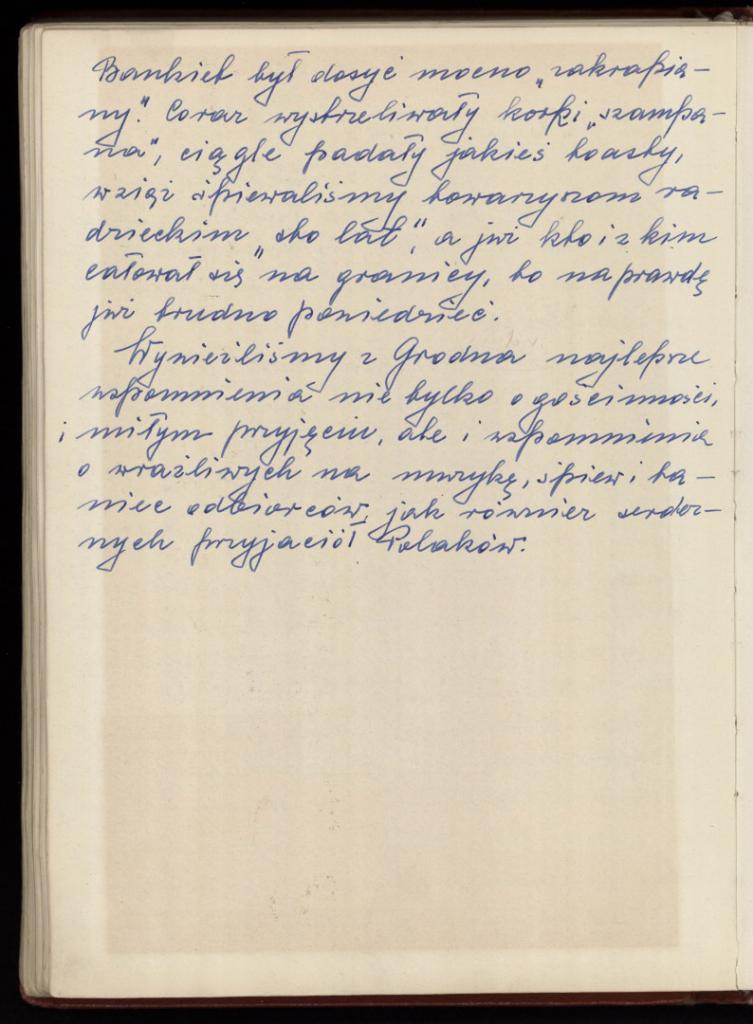 Bankiet był dosyć mocno „zakrapia-
ny". Coraz wystrzeliwały korki „szampa-
na", ciągle padały jakieś toasty,
wciąż śpiewaliśmy towarzyszom ra-
dzieckim „sto lat", a już kto i z kim
całował się na granicy, to na prawdę
już trudno powiedzieć.
Wynieźliśmy z Grodna najlepsze
wspomnienia nie tylko o gościnności,
i miłym przyjęciu, ale i wspomnienia
o wrażliwych na muzykę, śpiew i ta-
niec odbiorców, jak również serdecz-
nych przyjaciół Polaków.